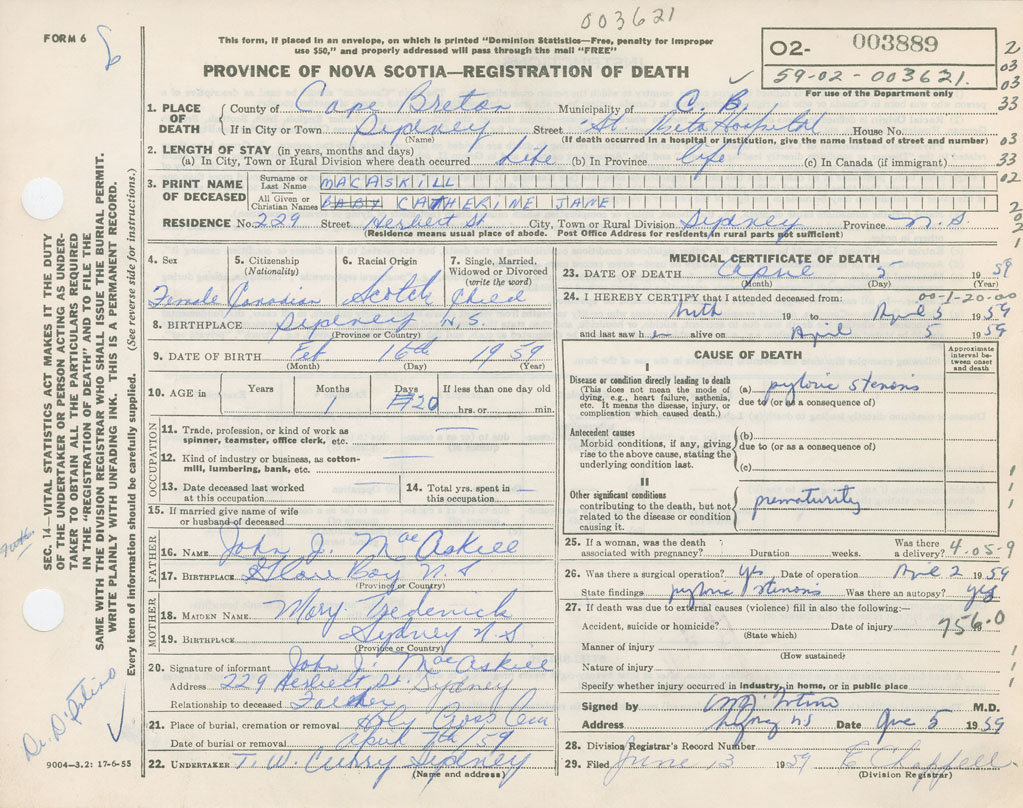 003621
FORM 6
This form, if placed in an envelope, on which is printed "Dominion Statistics—Free, penalty for improper
use $50," and properly addressed will pass through the mail "FREE"
PROVINCE OF NOVA SCOTIA—REGISTRATION OF DEATH
02- 003889
59-02-003621.
For use of the Department only
2
03
03
33
03
33
02
2
0
2
1
1. PLACE OF DEATH County of Cape Breton Municipality of C. B.
If in City or Town Sydney Street St. Rita Hospital House No.
(Name) (If death occurred in a hospital or institution, give the name instead of street and number)
2. LENGTH OF STAY (in years, months and days)
(a) In City, Town or Rural Division where death occurred Life (b) In Province life (c) In Canada (if immigrant)
3. PRINT NAME OF DECEASED Surname or Last Name MACASKILL
All Given or Christian Names BABY CATHERINE JANE
RESIDENCE No. 229 Street Herbert St City, Town or Rural Division Sydney Province N.S.
(Residence means usual place of abode. Post Office Address for residents in rural parts not sufficient)
4. Sex 5. Citizenship (Nationality) 6. Racial Origin 7. Single, Married, Widowed or Divorced (write the word)
Female Canadian Scotch Child
8. BIRTHPLACE Sydney N.S.
(Province or Country)
9. DATE OF BIRTH Feb 16th 1959
(Month) (Day) (Year)
10. AGE in Years Months Days If less than one day old
1 20 hrs. or min.
OCCUPATION
11. Trade, profession, or kind of work as spinner, teamster, office clerk, etc. —
12. Kind of industry or business, as cotton-mill, lumbering, bank, etc. —
13. Date deceased last worked at this occupation — 14. Total yrs. spent in this occupation —
15. If married give name of wife or husband of deceased
FATHER
16. NAME John J. MacAskill
17. BIRTHPLACE Glace Bay N.S
(Province or Country)
MOTHER
18. MAIDEN NAME Mary
19. BIRTHPLACE Sydney N S
(Province or Country)
20. Signature of informant John J. MacAskill
Address 229 Herbert St. Sydney
Relationship to deceased Father
21. Place of burial, cremation or removal Holy Cross Cem
Date of burial or removal April 7th/59
22. UNDERTAKER T. W. Curry Sydney
(Name and address)
MEDICAL CERTIFICATE OF DEATH
23. DATE OF DEATH April 5 1959
(Month) (Day) (Year)
00-1-20-00
24. I HEREBY CERTIFY that I attended deceased from:
birth 19 to April 5 1959
and last saw her alive on April 5 1959
CAUSE OF DEATH
Approximate interval between onset and death
I
Disease or condition directly leading to death (a) pyloric stenosis
(This does not mean the mode of dying, e.g., heart failure, asthenia, etc. It means the disease, injury, or complication which caused death.)
due to (or as a consequence of)
Antecedent causes (b)
Morbid conditions, if any, giving rise to the above cause, stating the underlying condition last.
due to (or as a consequence of)
(c)
II
Other significant conditions prematurity
contributing to the death, but not related to the disease or condition causing it.
25. If a woman, was the death associated with pregnancy? Duration weeks. Was there a delivery? 4-05-9
26. Was there a surgical operation? yes Date of operation April 2 1959
State findings pyloric stenosis Was there an autopsy? yes
27. If death was due to external causes (violence) fill in also the following:—
Accident, suicide or homicide? Date of injury 19
(State which) 756.0
Manner of injury
(How sustained)
Nature of injury
Specify whether injury occurred in industry, in home, or in public place
Signed by M.D.
Address Sydney NS Date 5 1959
28. Division Registrar's Record Number
29. Filed June 13 1959 E Chappell
(Division Registrar)
SEC. 14—VITAL STATISTICS ACT MAKES IT THE DUTY
OF THE UNDERTAKER OR PERSON ACTING AS UNDER-
TAKER TO OBTAIN ALL THE PARTICULARS REQUIRED
IN THE "REGISTRATION OF DEATH" AND TO FILE THE
SAME WITH THE DIVISION REGISTRAR WHO SHALL ISSUE THE BURIAL PERMIT.
WRITE PLAINLY WITH UNFADING INK. THIS IS A PERMANENT RECORD.
Every item of information should be carefully supplied. (See reverse side for instructions.)
9004—3.2: 17-6-55